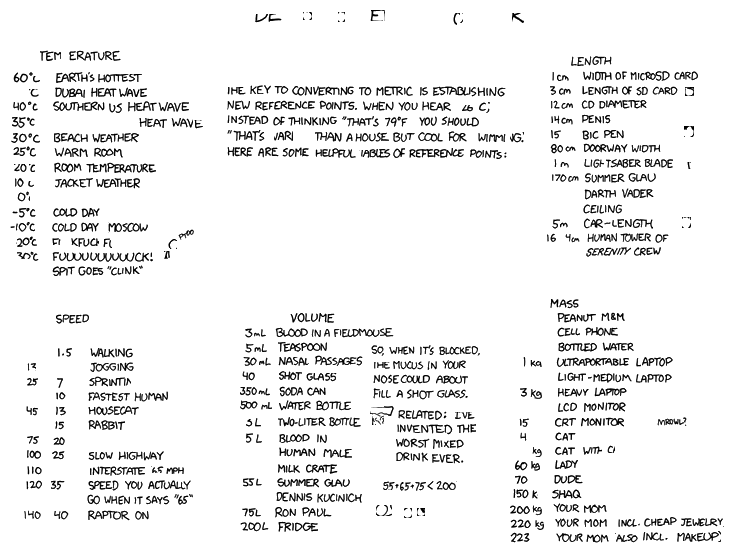 TEM ERATURE
60°C EARTH'S HOTTEST
°C DUBAI HEAT WAVE
40°C SOUTHERN US HEAT WAVE
35°C HEAT WAVE
30°C BEACH WEATHER
25°C WARM ROOM
20°C ROOM TEMPERATURE
10 JACKET WEATHER
0°
-5°C COLD DAY
-10°C COLD DAY MOSCOW
20°C
30°C FUUUUUUUUUUCK!
SPIT GOES "CLINK"
THE KEY TO CONVERTING TO METRIC IS ESTABLISHING
NEW REFERENCE POINTS. WHEN YOU HEAR 26 C,
INSTEAD OF THINKING "THAT'S 79°F YOU SHOULD
"THAT'S THAN A HOUSE BUT COOL FOR
HERE ARE SOME HELPFUL TABLES OF REFERENCE POINTS:
LENGTH
1 cm WIDTH OF MICROSD CARD
3 cm LENGTH OF SD CARD
12 cm CD DIAMETER
14 cm PENIS
15 BIC PEN
80 cm DOORWAY WIDTH
1 m LIGHTSABER BLADE
170 cm SUMMER GLAU
DARTH VADER
CEILING
5m CAR-LENGTH
16 4m HUMAN TOWER OF
SERENITY CREW
SPEED
1.5 WALKING
13 JOGGING
25 7 SPRINTIN
10 FASTEST HUMAN
45 13 HOUSECAT
15 RABBIT
75 20
100 25 SLOW HIGHWAY
110 INTERSTATE 65 MPH
120 35 SPEED YOU ACTUALLY
GO WHEN IT SAYS "65"
140 40 RAPTOR ON
VOLUME
3mL BLOOD IN A FIELDMOUSE
5mL TEASPOON
30 mL NASAL PASSAGES
40 SHOT GLASS
350mL SODA CAN
500 mL WATER BOTTLE
3L TWO-LITER BOTTLE
5L BLOOD IN
HUMAN MALE
MILK CRATE
55L SUMMER GLAU
DENNIS KUCINICH
75L RON PAUL
200L FRIDGE
SO, WHEN IT'S BLOCKED,
THE MUCUS IN YOUR
NOSE COULD ABOUT
FILL A SHOT GLASS.
RELATED: I'VE
INVENTED THE
WORST MIXED
DRINK EVER.
55+65+75<200
MASS
PEANUT M&M
CELL PHONE
BOTTLED WATER
1 kg ULTRAPORTABLE LAPTOP
LIGHT-MEDIUM LAPTOP
3 kg HEAVY LAPTOP
LCD MONITOR
15 CRT MONITOR
4 CAT MROWL?
kg CAT WITH
60 kg LADY
70 DUDE
150 K SHAQ
200 kg YOUR MOM
220 kg YOUR MOM INCL. CHEAP JEWELRY
223 YOUR MOM ALSO INCL. MAKEUP